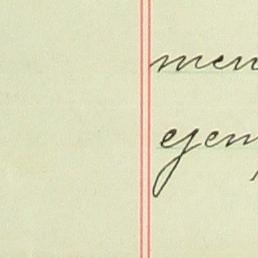 men
ejem